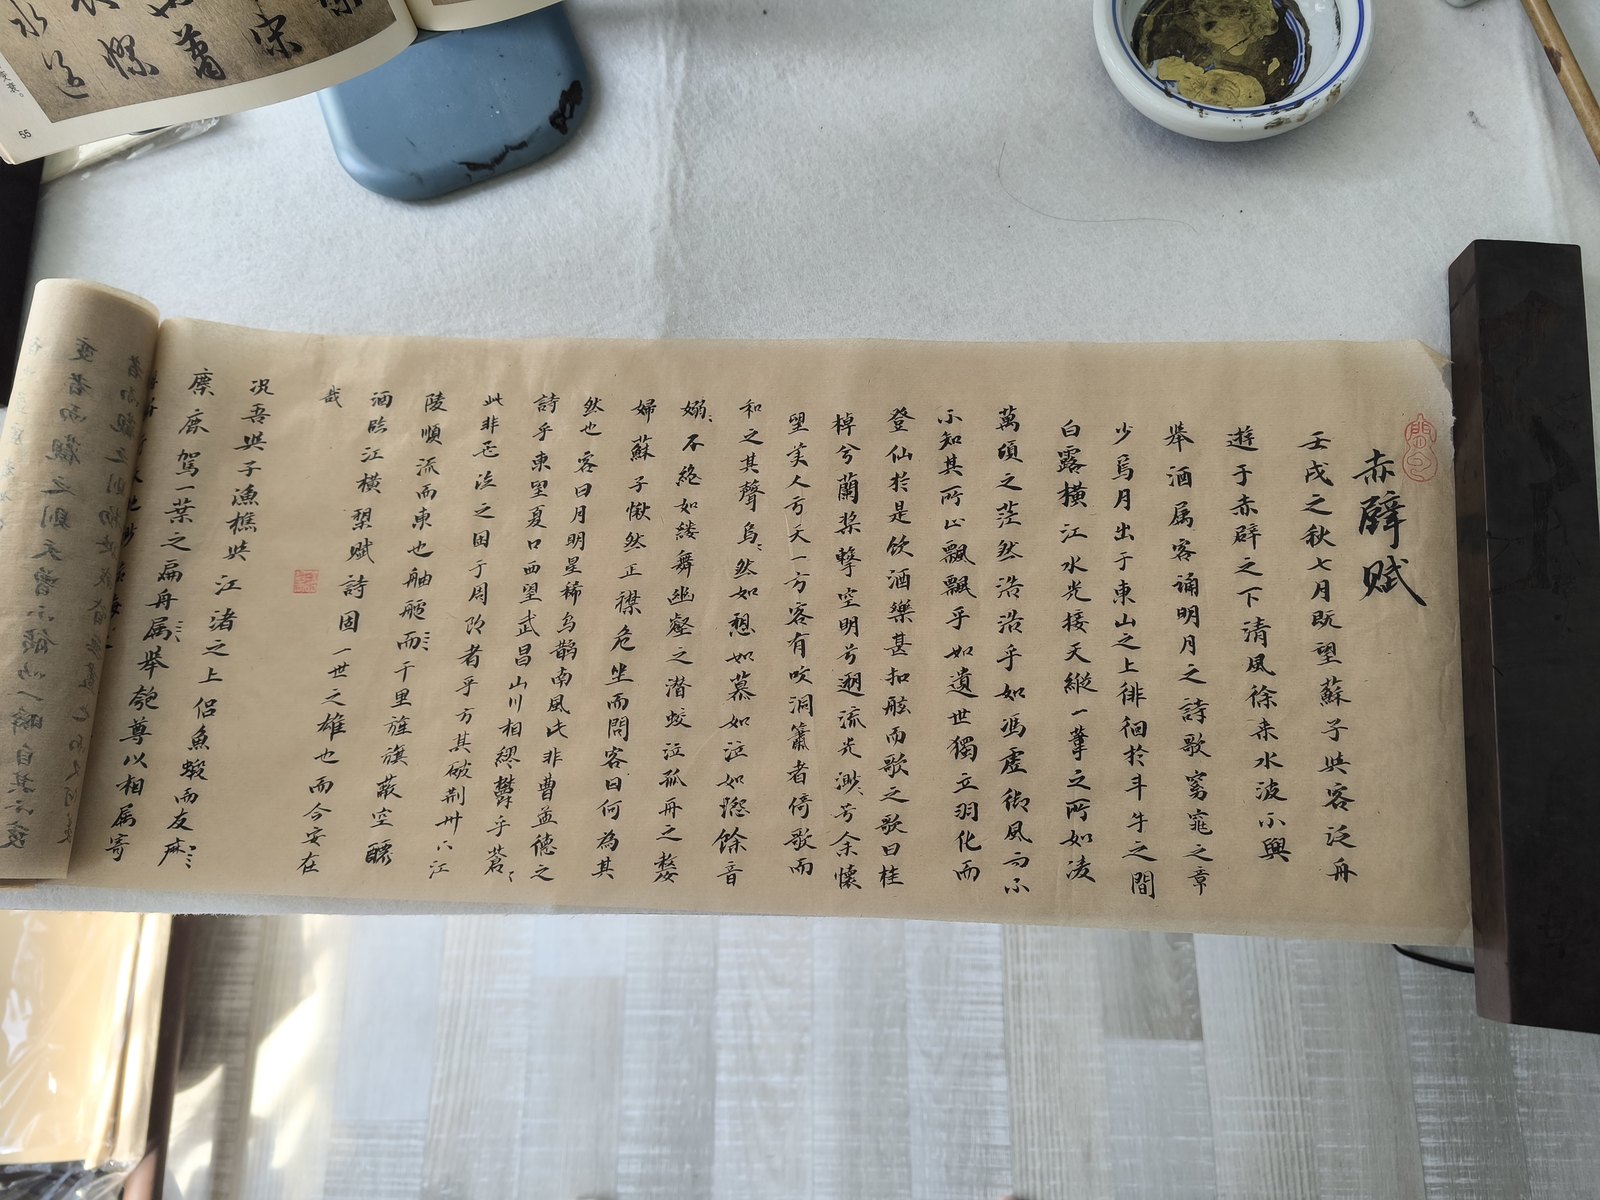 赤壁賦
壬戌之秋七月既望蘇子與客泛舟
遊于赤壁之下清風徐来水波不興
舉酒属客誦明月之詩歌窈窕之章
少焉月出于東山之上徘徊於斗牛之間
白露橫江水光接天縱一葦之所如凌
萬頃之茫然浩浩乎如馮虚御風而不
知其所止飄飄乎如遺世獨立羽化而
登仙於是飲酒樂甚扣舷而歌之歌曰桂
棹兮蘭槳擊空明兮遡流光渺〻兮余懷
望美人兮天一方客有吹洞簫者倚歌而
和之其聲烏〻然如怨如慕如泣如愬餘音
嫋〻不絕如縷舞幽壑之潛蛟泣孤舟之嫠
婦蘇子愀然正襟危坐而問客曰何為其
然也客曰月明星稀烏鵲南風此非曹孟德之
詩乎東望夏口西望武昌山川相繆鬱乎蒼〻
此非孟德之困于周郎者乎方其破荆州下江
陵順流而東也舳艫而千里旌旗蔽空釃
酒臨江橫槊賦詩固一世之雄也而今安在
哉
況吾與子漁樵與江渚之上侣魚蝦而友麻
麋鹿駕一葉之扁舟属舉匏尊以相属寄
變者而觀之則天曾不能以一瞬自其不變
者而觀之則物
55